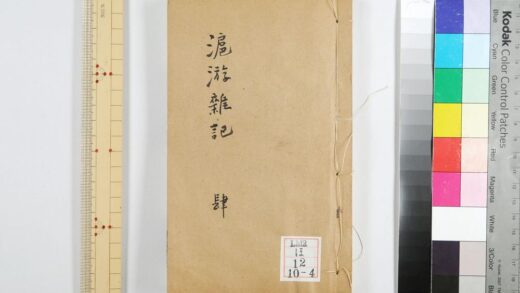 滬游雜記 肆
12
10-4
Kodak Color Control Patches
Blue
Cyan
Green
Yellow
Red
Magenta
White
3/Color